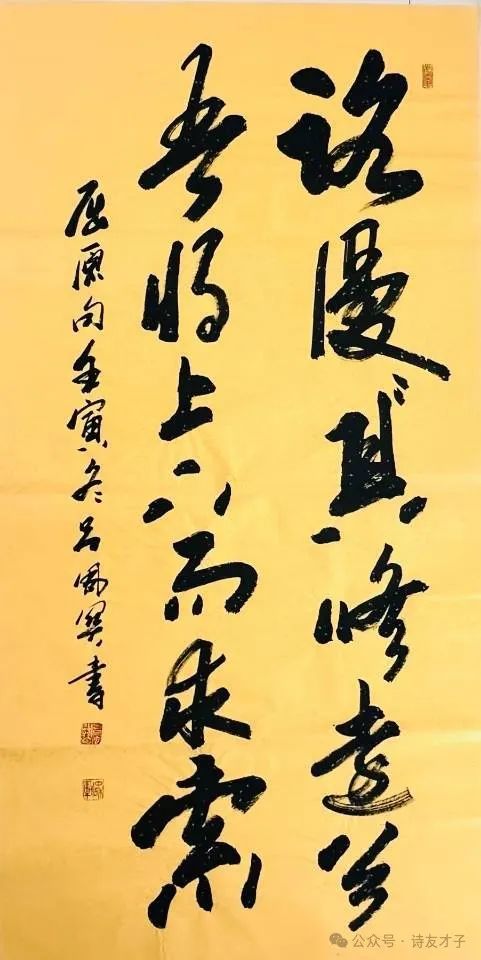 路漫漫其修远兮
吾将上下而求索
屈原句壬寅冬吕凤军书
公众号·诗友才子